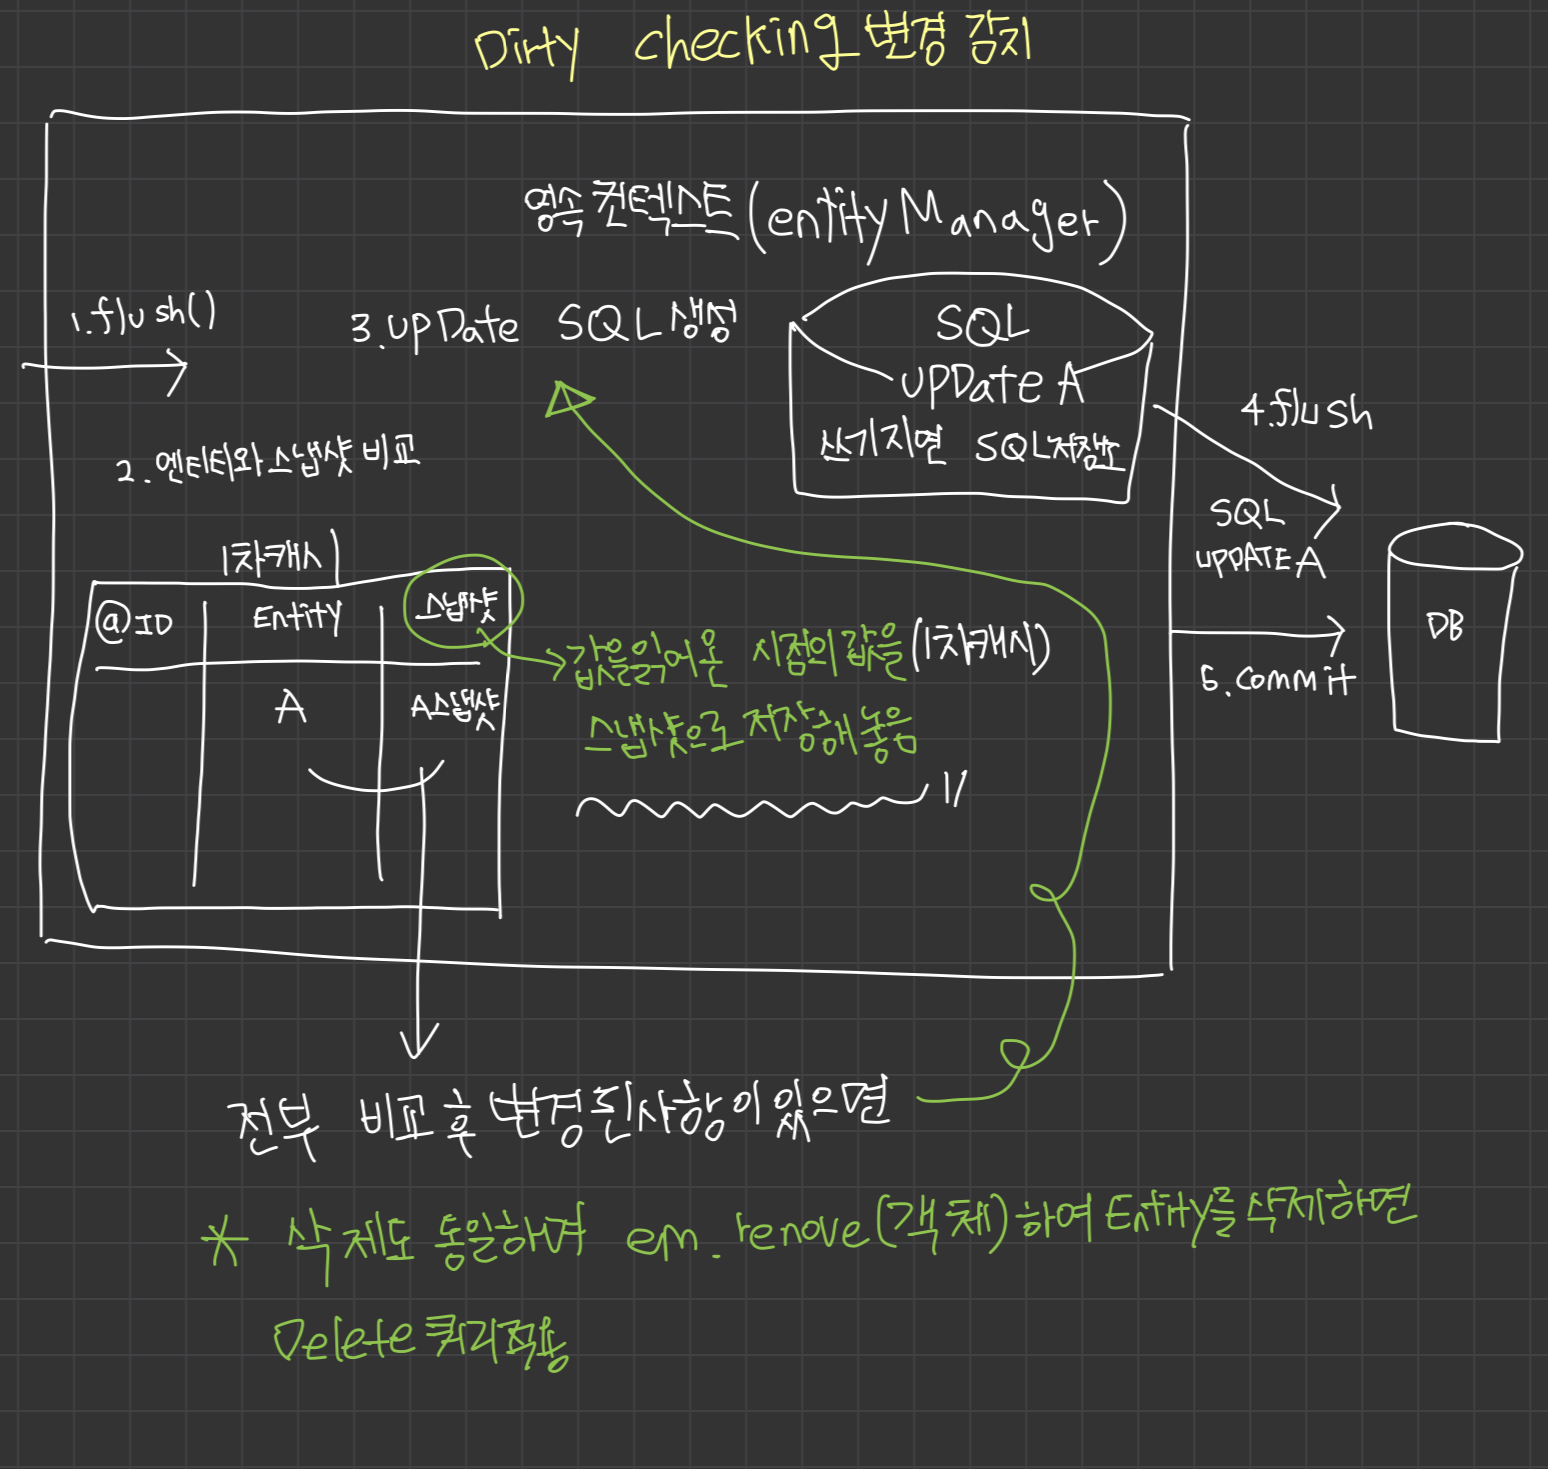 Dirty checking 변경 감지
영속 컨텍스트 (entity Manager)
1.flush()
3.upDate SQL 생성
SQL
UPDate A
쓰기지연 SQL저장소
4.flush
SQL
UPDATE A
2.엔티티와 스냅샷 비교
1차캐시
@ID Entity 스냅샷
A A스냅샷
값을읽어온 시점의 값을 (1차캐시)
스냅샷으로 저장해 놓음
DB
5.commit
전부 비교 후 변경된사항이 있으면
* 삭제도 동일하며 em.renove(객체)하여 Entity를 삭제하면
Delete 쿼리적용